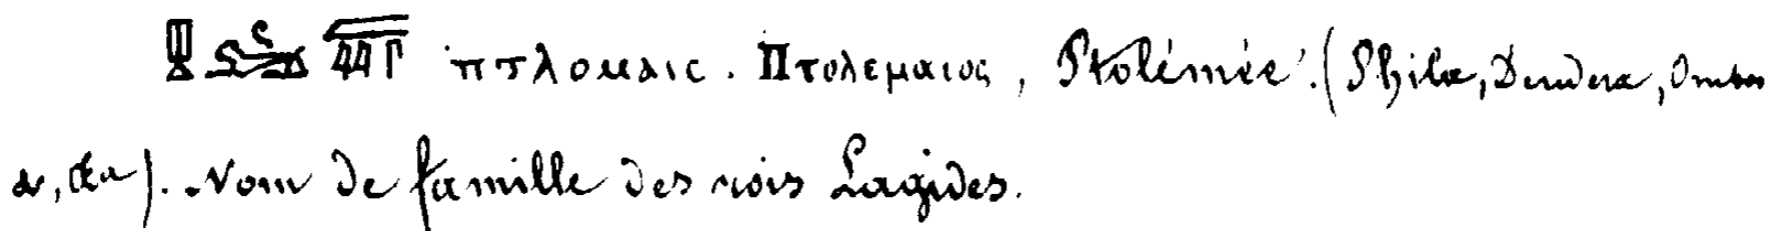 ⲡⲧⲗⲟⲙⲁⲓⲥ. Πτολεμαιος, Ptolémée. (Philæ, Dendera, Ombos
&, &a). Nom de famille des rois Lagides.